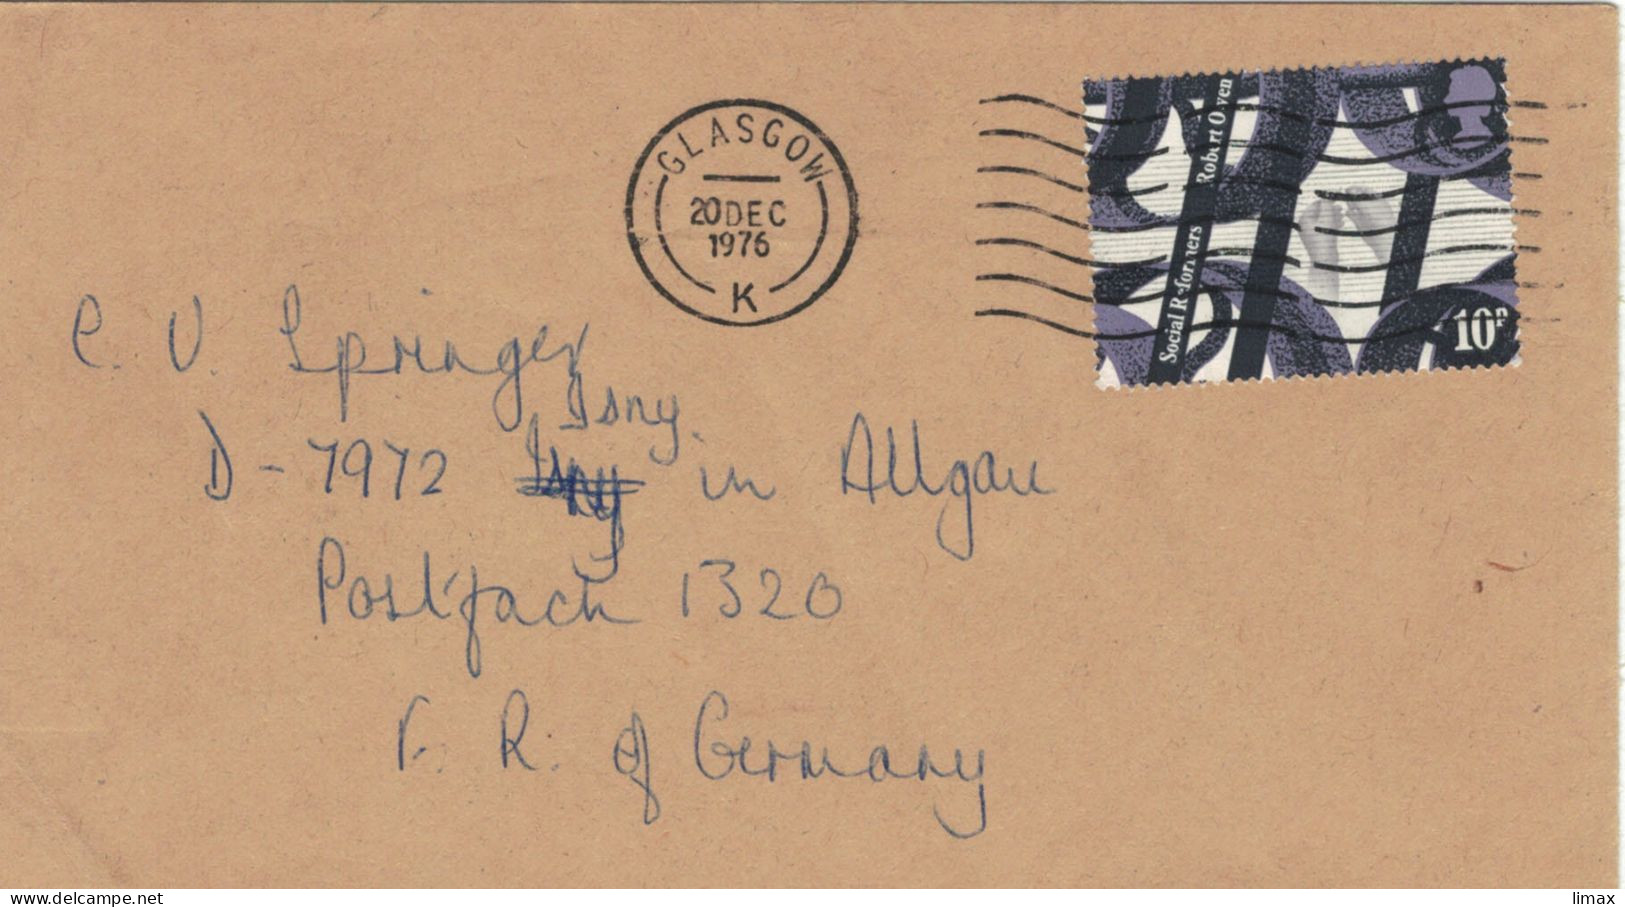 GLASGOW
20 DEC
1976
K
Social Reformers Robert Owen
10P
C. V. Springer
Isny.
D-7972 Isny in Allgau
Postfach 1320
F. R. of Germany
limax